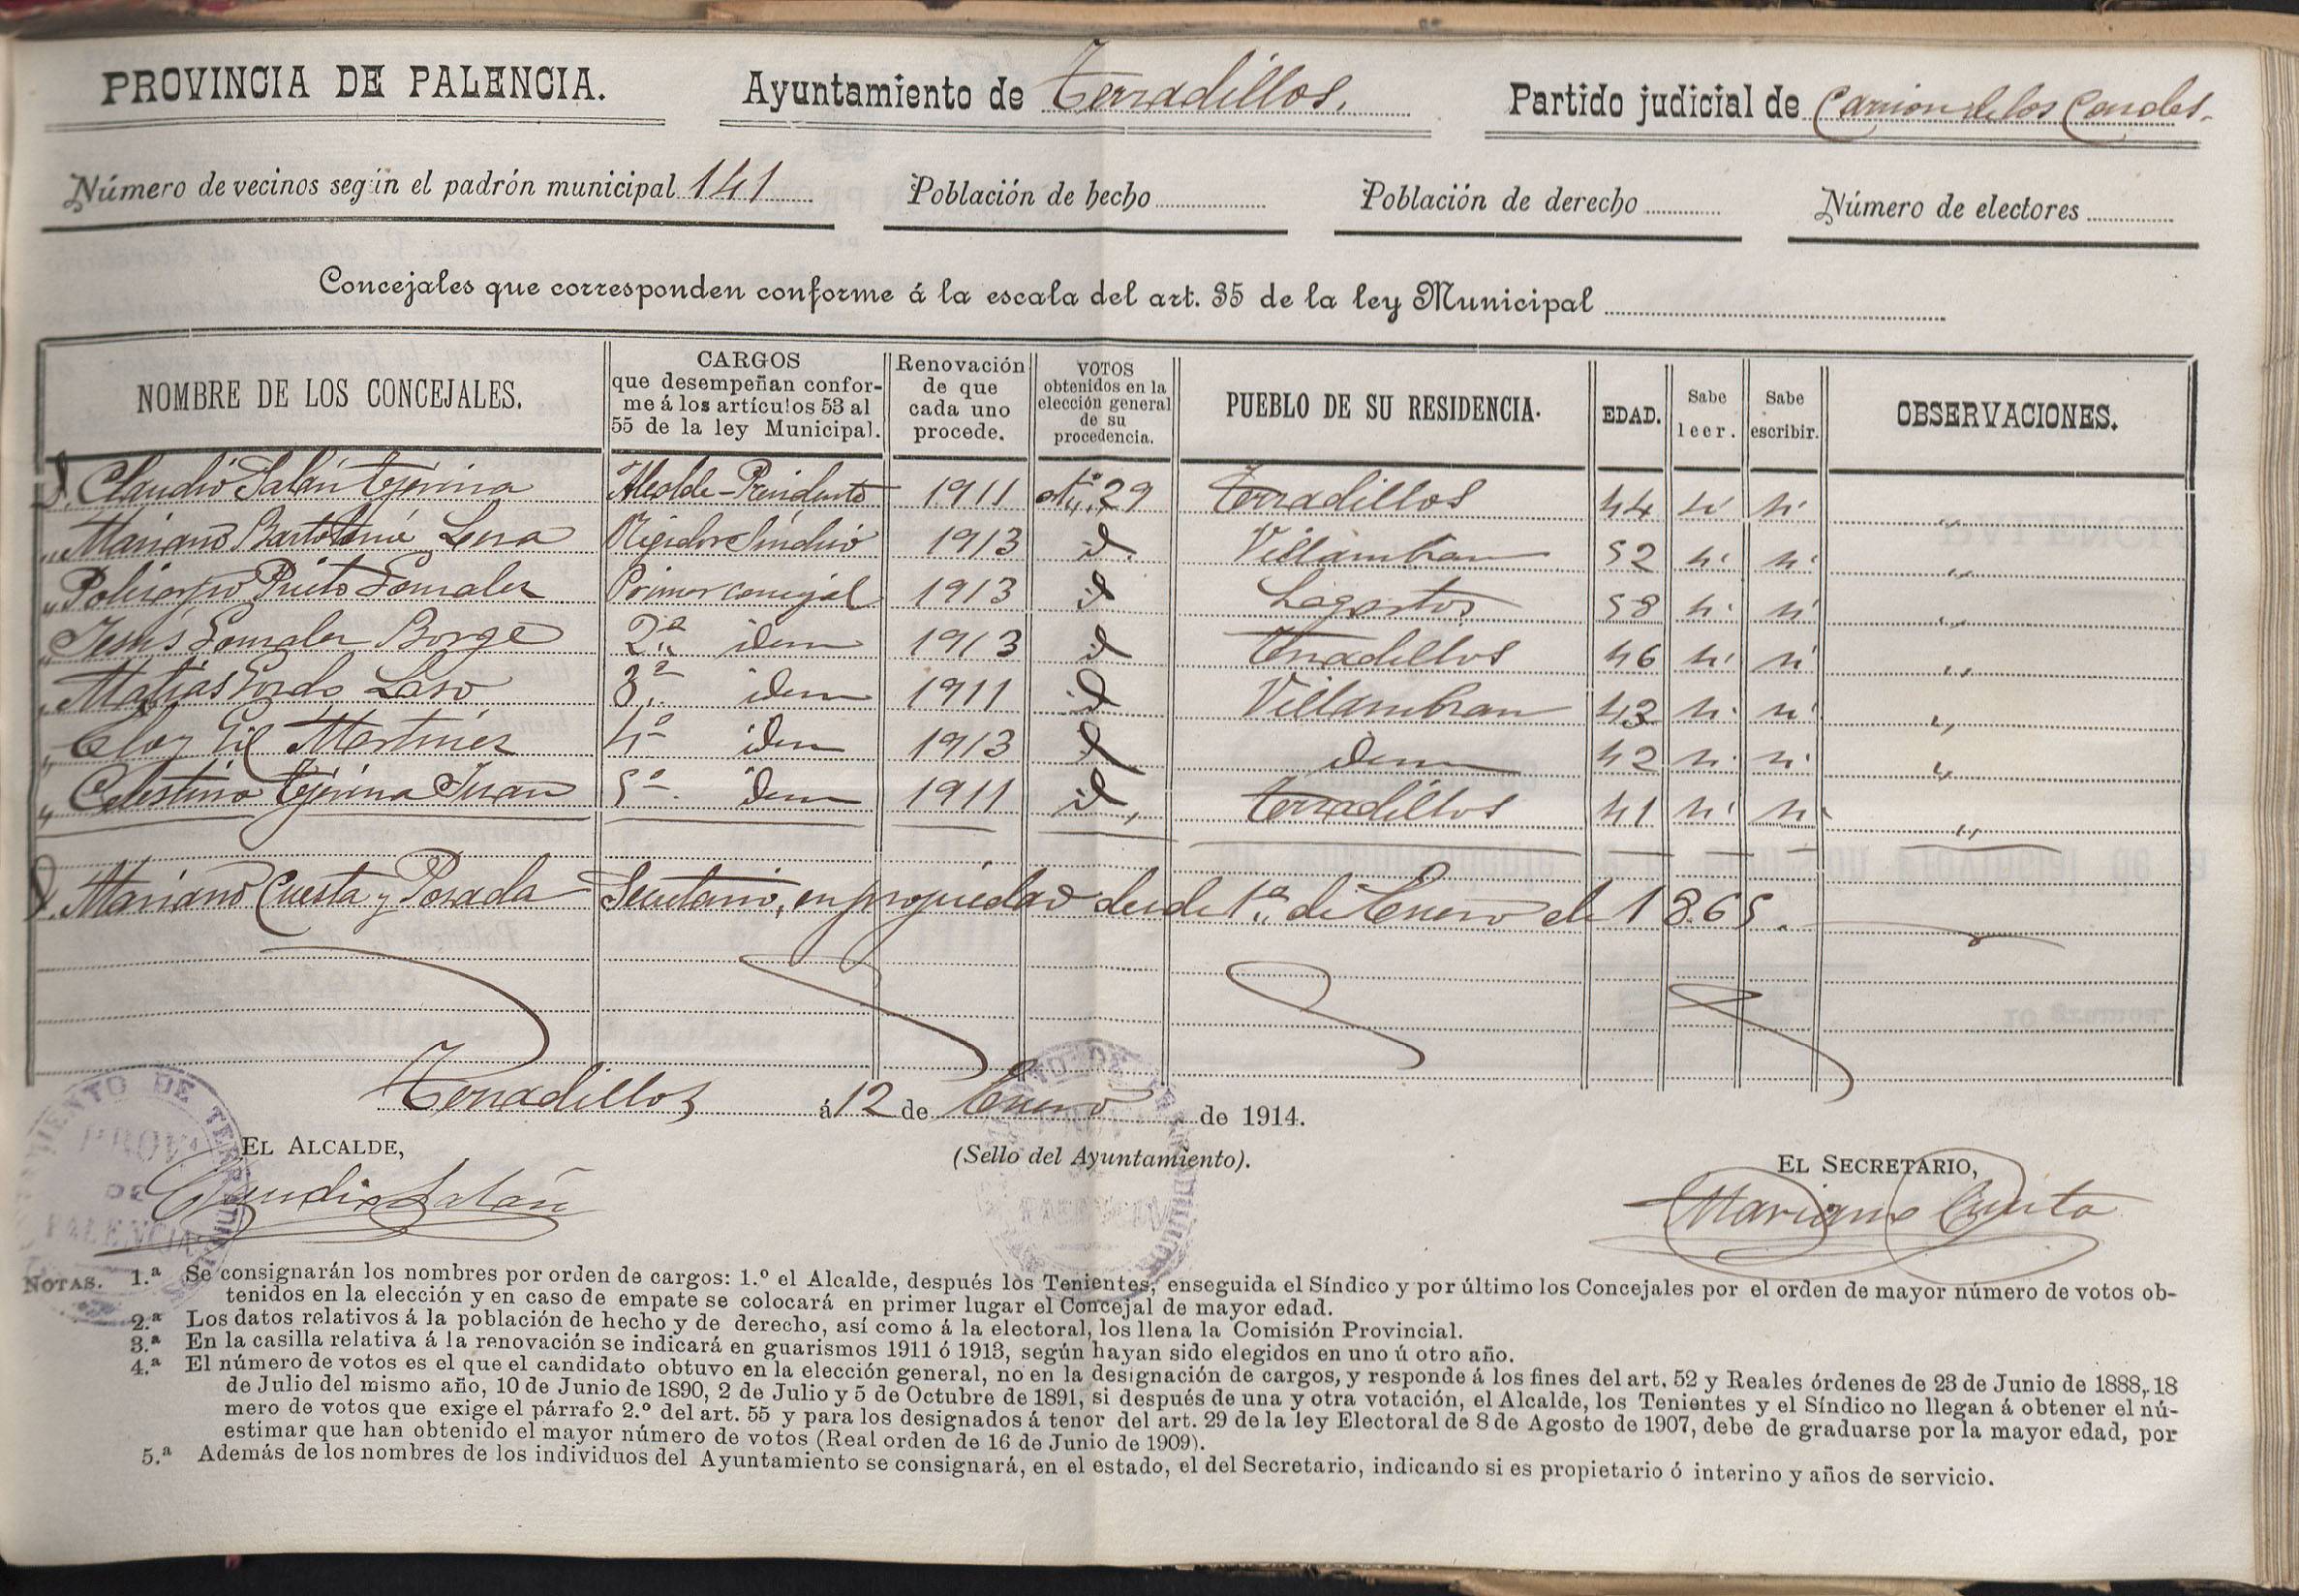 PROVINCIA DE PALENCIA. Ayuntamiento de Terradillos. Partido judicial de Carrion de los Condes.
Número de vecinos según el padrón municipal 141 Población de hecho Población de derecho Número de electores
Concejales que corresponden conforme á la escala del art. 35 de la ley Municipal
NOMBRE DE LOS CONCEJALES.
CARGOS
que desempeñan confor-
me á los artículos 53 al
55 de la ley Municipal.
Renovación
de que
cada uno
procede.
VOTOS
obtenidos en la
elección general
de su
procedencia.
PUEBLO DE SU RESIDENCIA.
EDAD.
Sabe
leer.
Sabe
escribir.
OBSERVACIONES.
D. Claudio Salán Tejerina Alcalde-Presidente 1911 Atº 29 Terradillos 44 si si "
" Mariano Bartolomé Lera Regidor Síndico 1913 id. Villambran 52 si si "
" Policarpo Prieto Gonzalez Primer concejal 1913 id Lagartos 58 si si "
" Jesus Gonzalez Borge 2º idem 1913 id Terradillos 46 si si "
" Matias Gordo Laso 3º idem 1911 id Villambran 43 si si "
" Eloy Gil Martinez 4º idem 1913 id idem 42 si si "
" Celestino Tejerina Juan 5º idem 1911 id, Terradillos 41 si si "
D. Mariano Cuesta y Posada Secretario, en propiedad desde 1º de Enero de 1865.
Terradillos á 12 de Enero de 1914.
EL ALCALDE,
(Sello del Ayuntamiento).
EL SECRETARIO,
Claudio Salán
Mariano Cuesta
NOTAS. 1.ª Se consignarán los nombres por orden de cargos: 1.º el Alcalde, después los Tenientes, enseguida el Síndico y por último los Concejales por el orden de mayor número de votos ob-
tenidos en la elección y en caso de empate se colocará en primer lugar el Concejal de mayor edad.
2.ª Los datos relativos á la población de hecho y de derecho, así como á la electoral, los llena la Comisión Provincial.
3.ª En la casilla relativa á la renovación se indicará en guarismos 1911 ó 1913, según hayan sido elegidos en uno ú otro año.
4.ª El número de votos es el que el candidato obtuvo en la elección general, no en la designación de cargos, y responde á los fines del art. 52 y Reales órdenes de 23 de Junio de 1888, 18
de Julio del mismo año, 10 de Junio de 1890, 2 de Julio y 5 de Octubre de 1891, si después de una y otra votación, el Alcalde, los Tenientes y el Síndico no llegan á obtener el nú-
mero de votos que exige el párrafo 2.º del art. 55 y para los designados á tenor del art. 29 de la ley Electoral de 8 de Agosto de 1907, debe de graduarse por la mayor edad, por
estimar que han obtenido el mayor número de votos (Real orden de 16 de Junio de 1909).
5.ª Además de los nombres de los individuos del Ayuntamiento se consignará, en el estado, el del Secretario, indicando si es propietario ó interino y años de servicio.